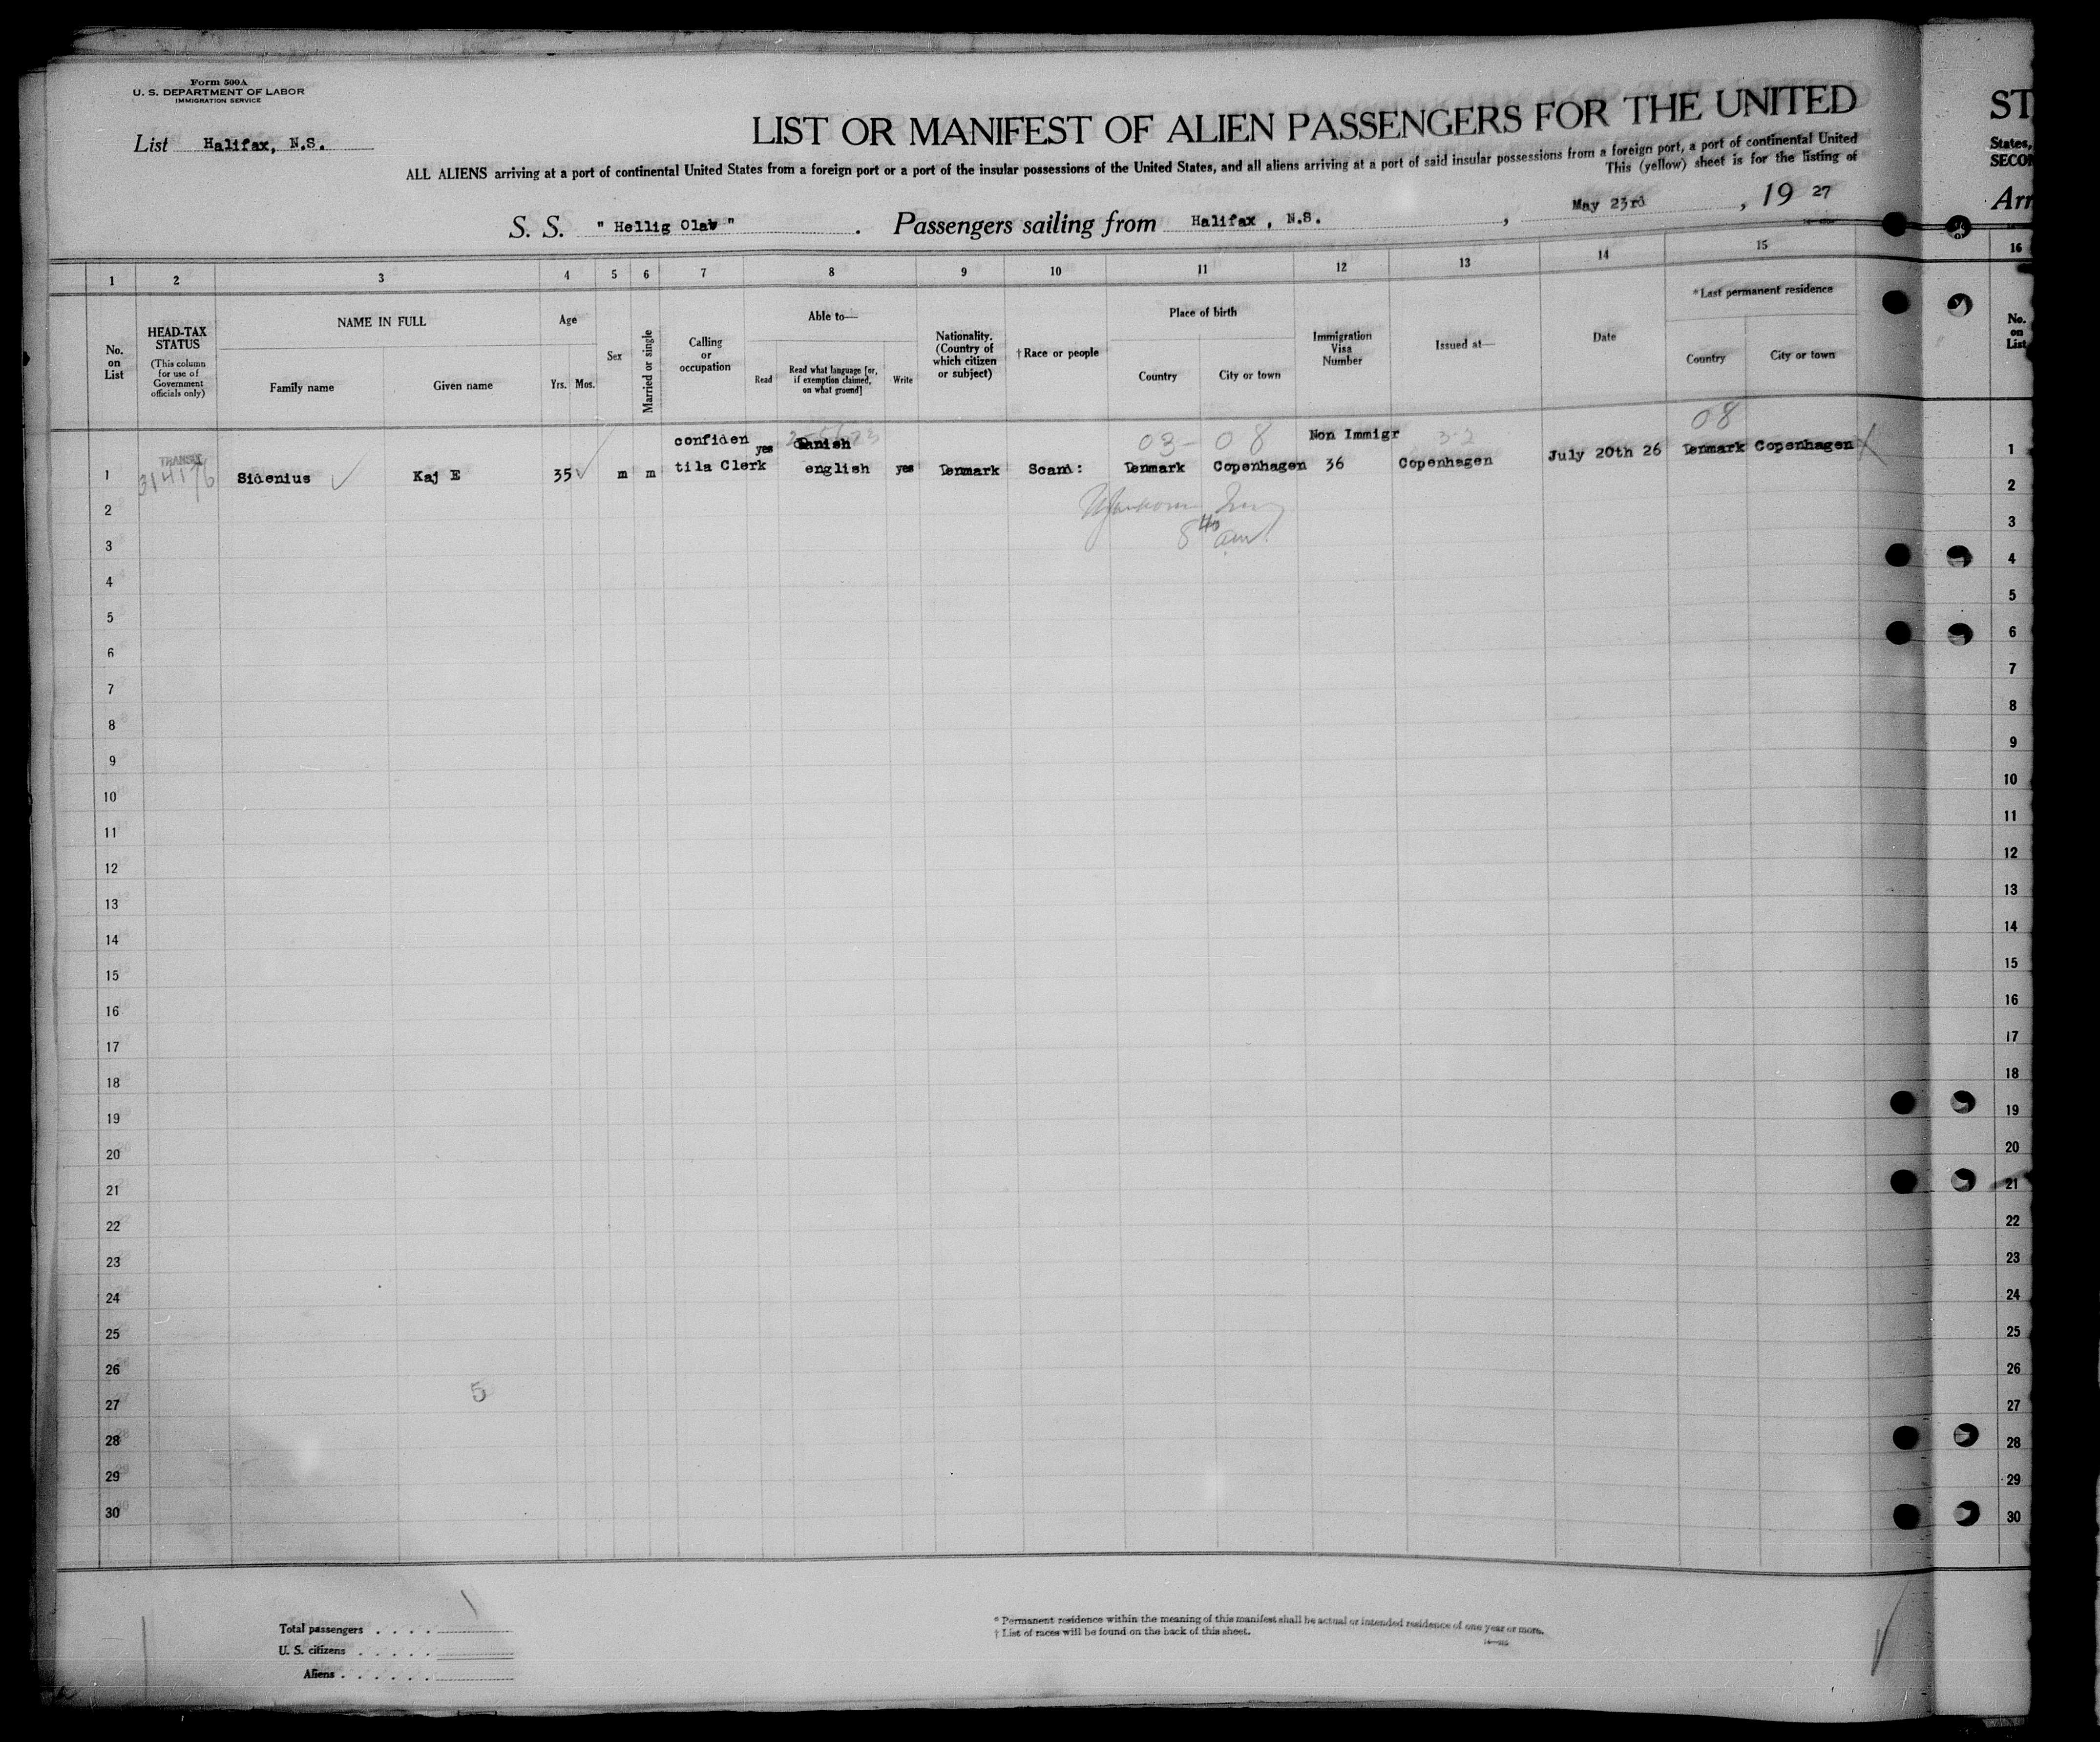 Form 500A
U. S. DEPARTMENT OF LABOR
IMMIGRATION SERVICE
List Halifax, N.S.
LIST OR MANIFEST OF ALIEN PASSENGERS FOR THE UNITED
ST
ALL ALIENS arriving at a port of continental United States from a foreign port or a port of the insular possessions of the United States, and all aliens arriving at a port of said insular possessions from a foreign port, a port of continental United
States,
This (yellow) sheet is for the listing of
SECON
S. S. " Hellig Olav " . Passengers sailing from Halifax , N.S. , May 23rd , 19 27
Arr
1 2 3 4 5 6 7 8 9 10 11 12 13 14 15 16
No. on List
HEAD-TAX STATUS
(This column for use of Government officials only)
NAME IN FULL
Family name
Given name
Age
Yrs. Mos.
Sex
Married or single
Calling or occupation
Able to—
Read
Read what language [or, if exemption claimed, on what ground]
Write
Nationality. (Country of which citizen or subject)
†Race or people
Place of birth
Country
City or town
Immigration Visa Number
Issued at—
Date
*Last permanent residence
Country
City or town
No. on List
08
confiden yes Danish 03- 08 Non Immigr 32
1 TRANSIT Sidenius Kaj E 35 m m tila Clerk english yes Denmark Scand: Denmark Copenhagen 36 Copenhagen July 20th 26 Denmark Copenhagen 1
2 2
8 40 am
3 3
4 4
5 5
6 6
7 7
8 8
9 9
10 10
11 11
12 12
13 13
14 14
15 15
16 16
17 17
18 18
19 19
20 20
21 21
22 22
23 23
24 24
25 25
26 26
5
27 27
28 28
29 29
30 30
Total passengers . . . .
U. S. citizens . . . . .
Aliens . . . . . .
* Permanent residence within the meaning of this manifest shall be actual or intended residence of one year or more.
† List of races will be found on the back of this sheet.